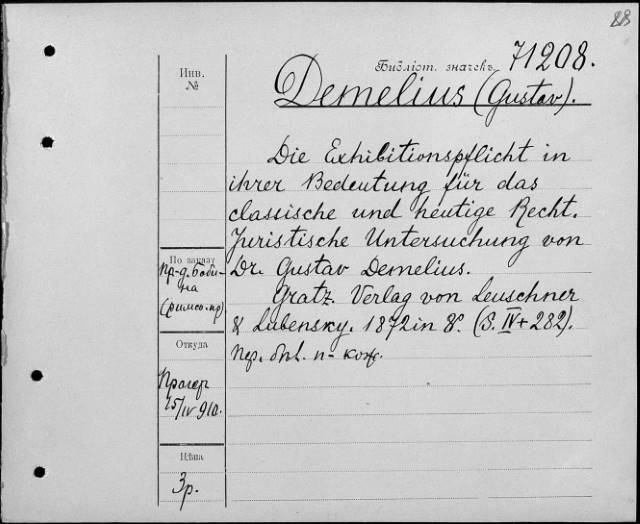 88
Инв.
№
Библіот. значекъ 71208.
Demelius (Gustav).
Die Exhibitionspflicht in
ihrer Bedeutung für das
classische und heutige Recht.
Juristische Untersuchung von
Dr. Gustav Demelius.
Gratz. Verlag von Leuschner
& Lubensky. 1872 in 8°. (S. IV + 282).
Пер. п-кож.
По зап
Пр-д. Боби-
на
(римск. пр)
Откуда
Прагер
15/IV 910.
Цѣна
3р.